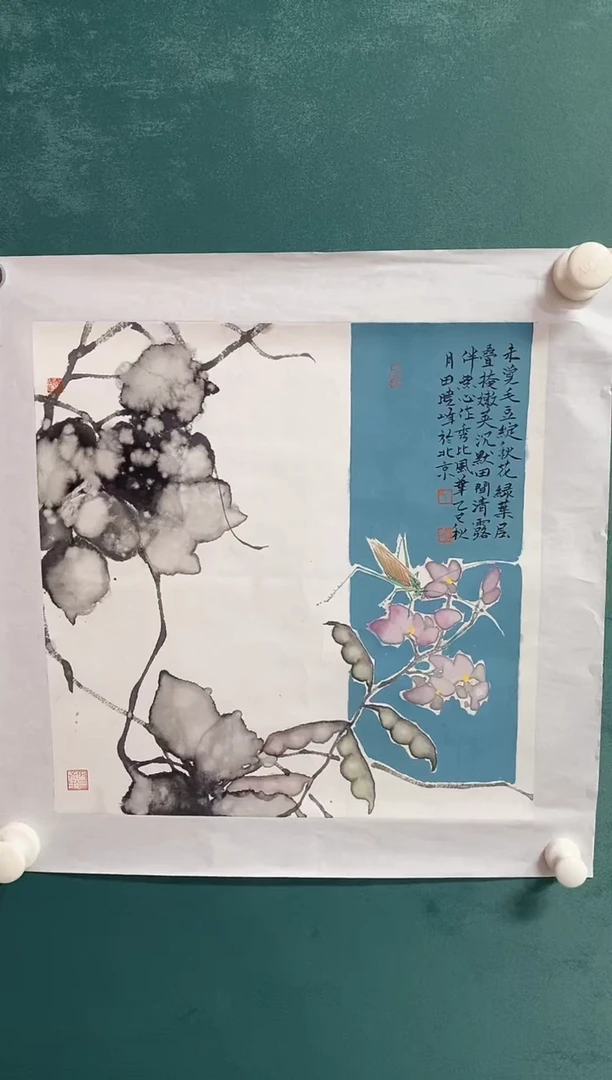 未覺毛豆綻秋花 綠葉层
疊掩嫩英沉默田間清露
伴忠心作秀比風華乙巳秋
月田曉峰於北京